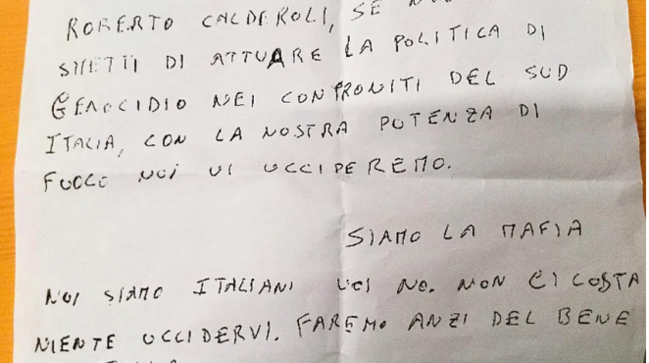 ROBERTO CALDEROLI, SE
SMETTI DI ATTUARE LA POLITICA DI
GENOCIDIO NEI CONFRONTI DEL SUD
ITALIA, CON LA NOSTRA POTENZA DI
FUOCO NOI VI UCCIDEREMO.
SIAMO LA MAFIA
NOI SIAMO ITALIANI VOI NO. NON CI COSTA
NIENTE UCCIDERVI. FAREMO ANZI DEL BENE